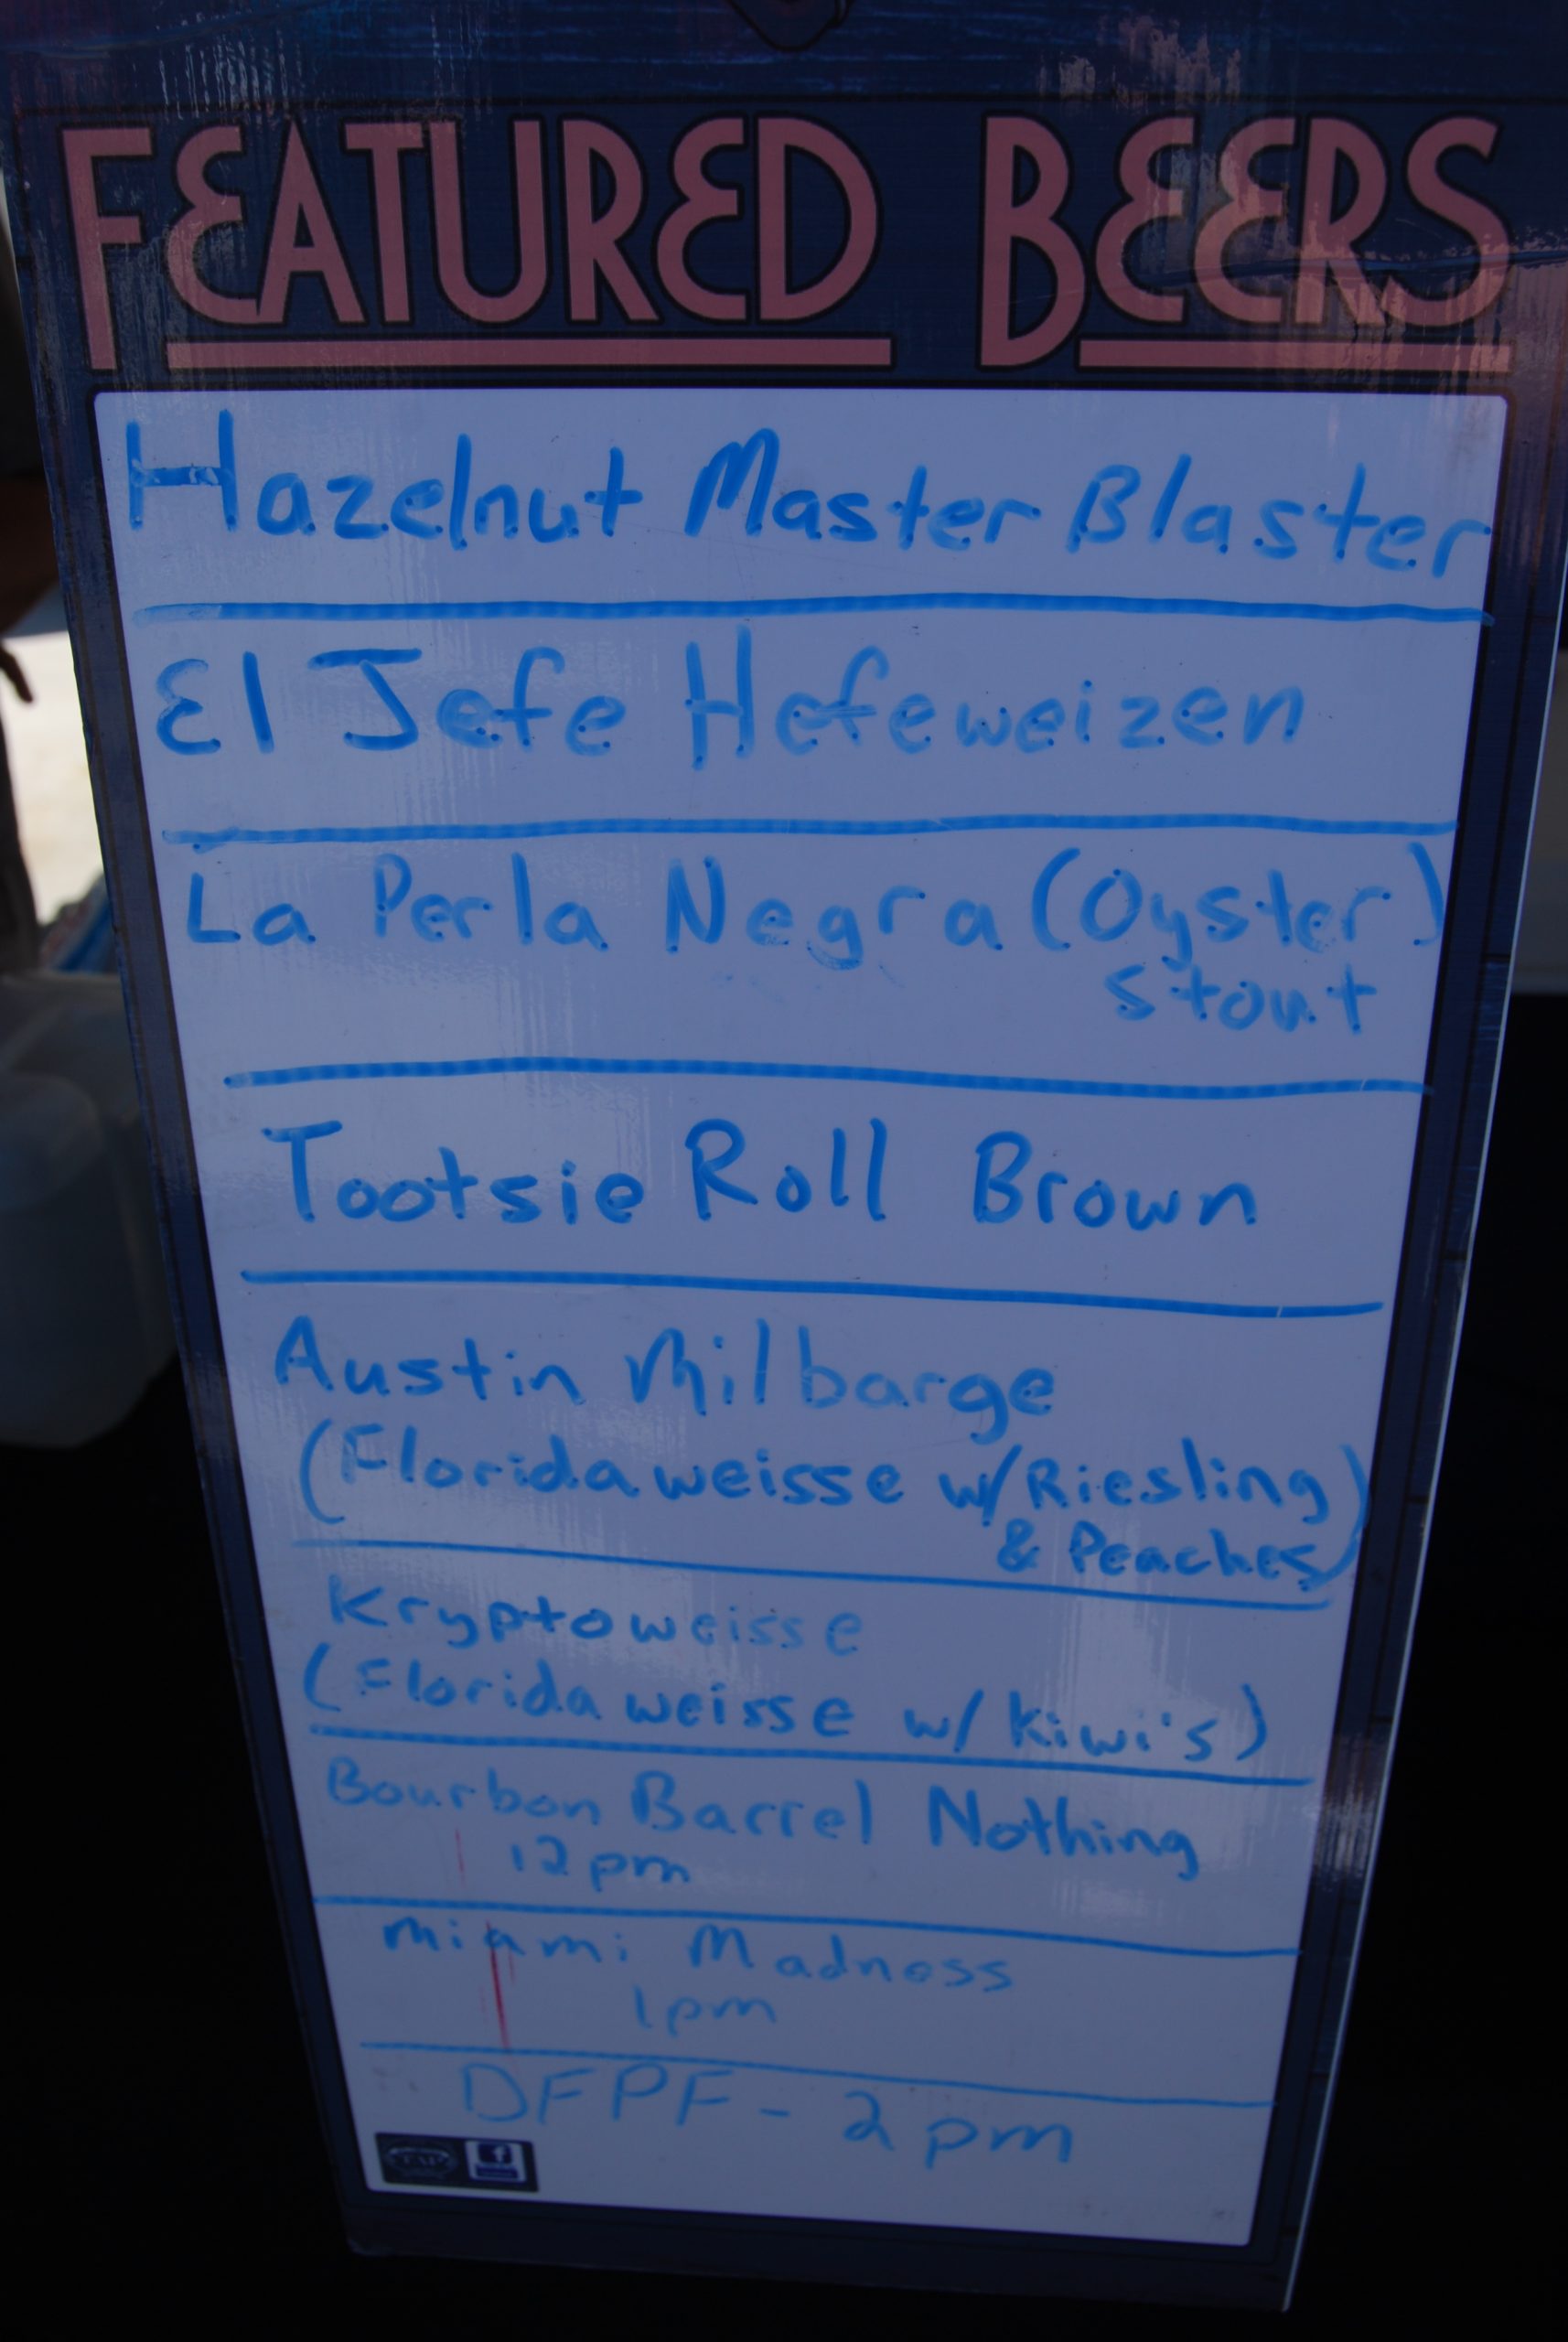 FEATURED BEERS
Hazelnut Master Blaster
El Jefe Hefeweizen
La Perla Negra (Oyster)
Stout
Tootsie Roll Brown
Austin Milbarge
(Florida weisse w/ Riesling)
& Peaches)
Kryptoweisse
(Florida weisse w/ kiwi's)
Bourbon Barrel Nothing
12pm
Miami Madness
1pm
DFPF - 2pm
f